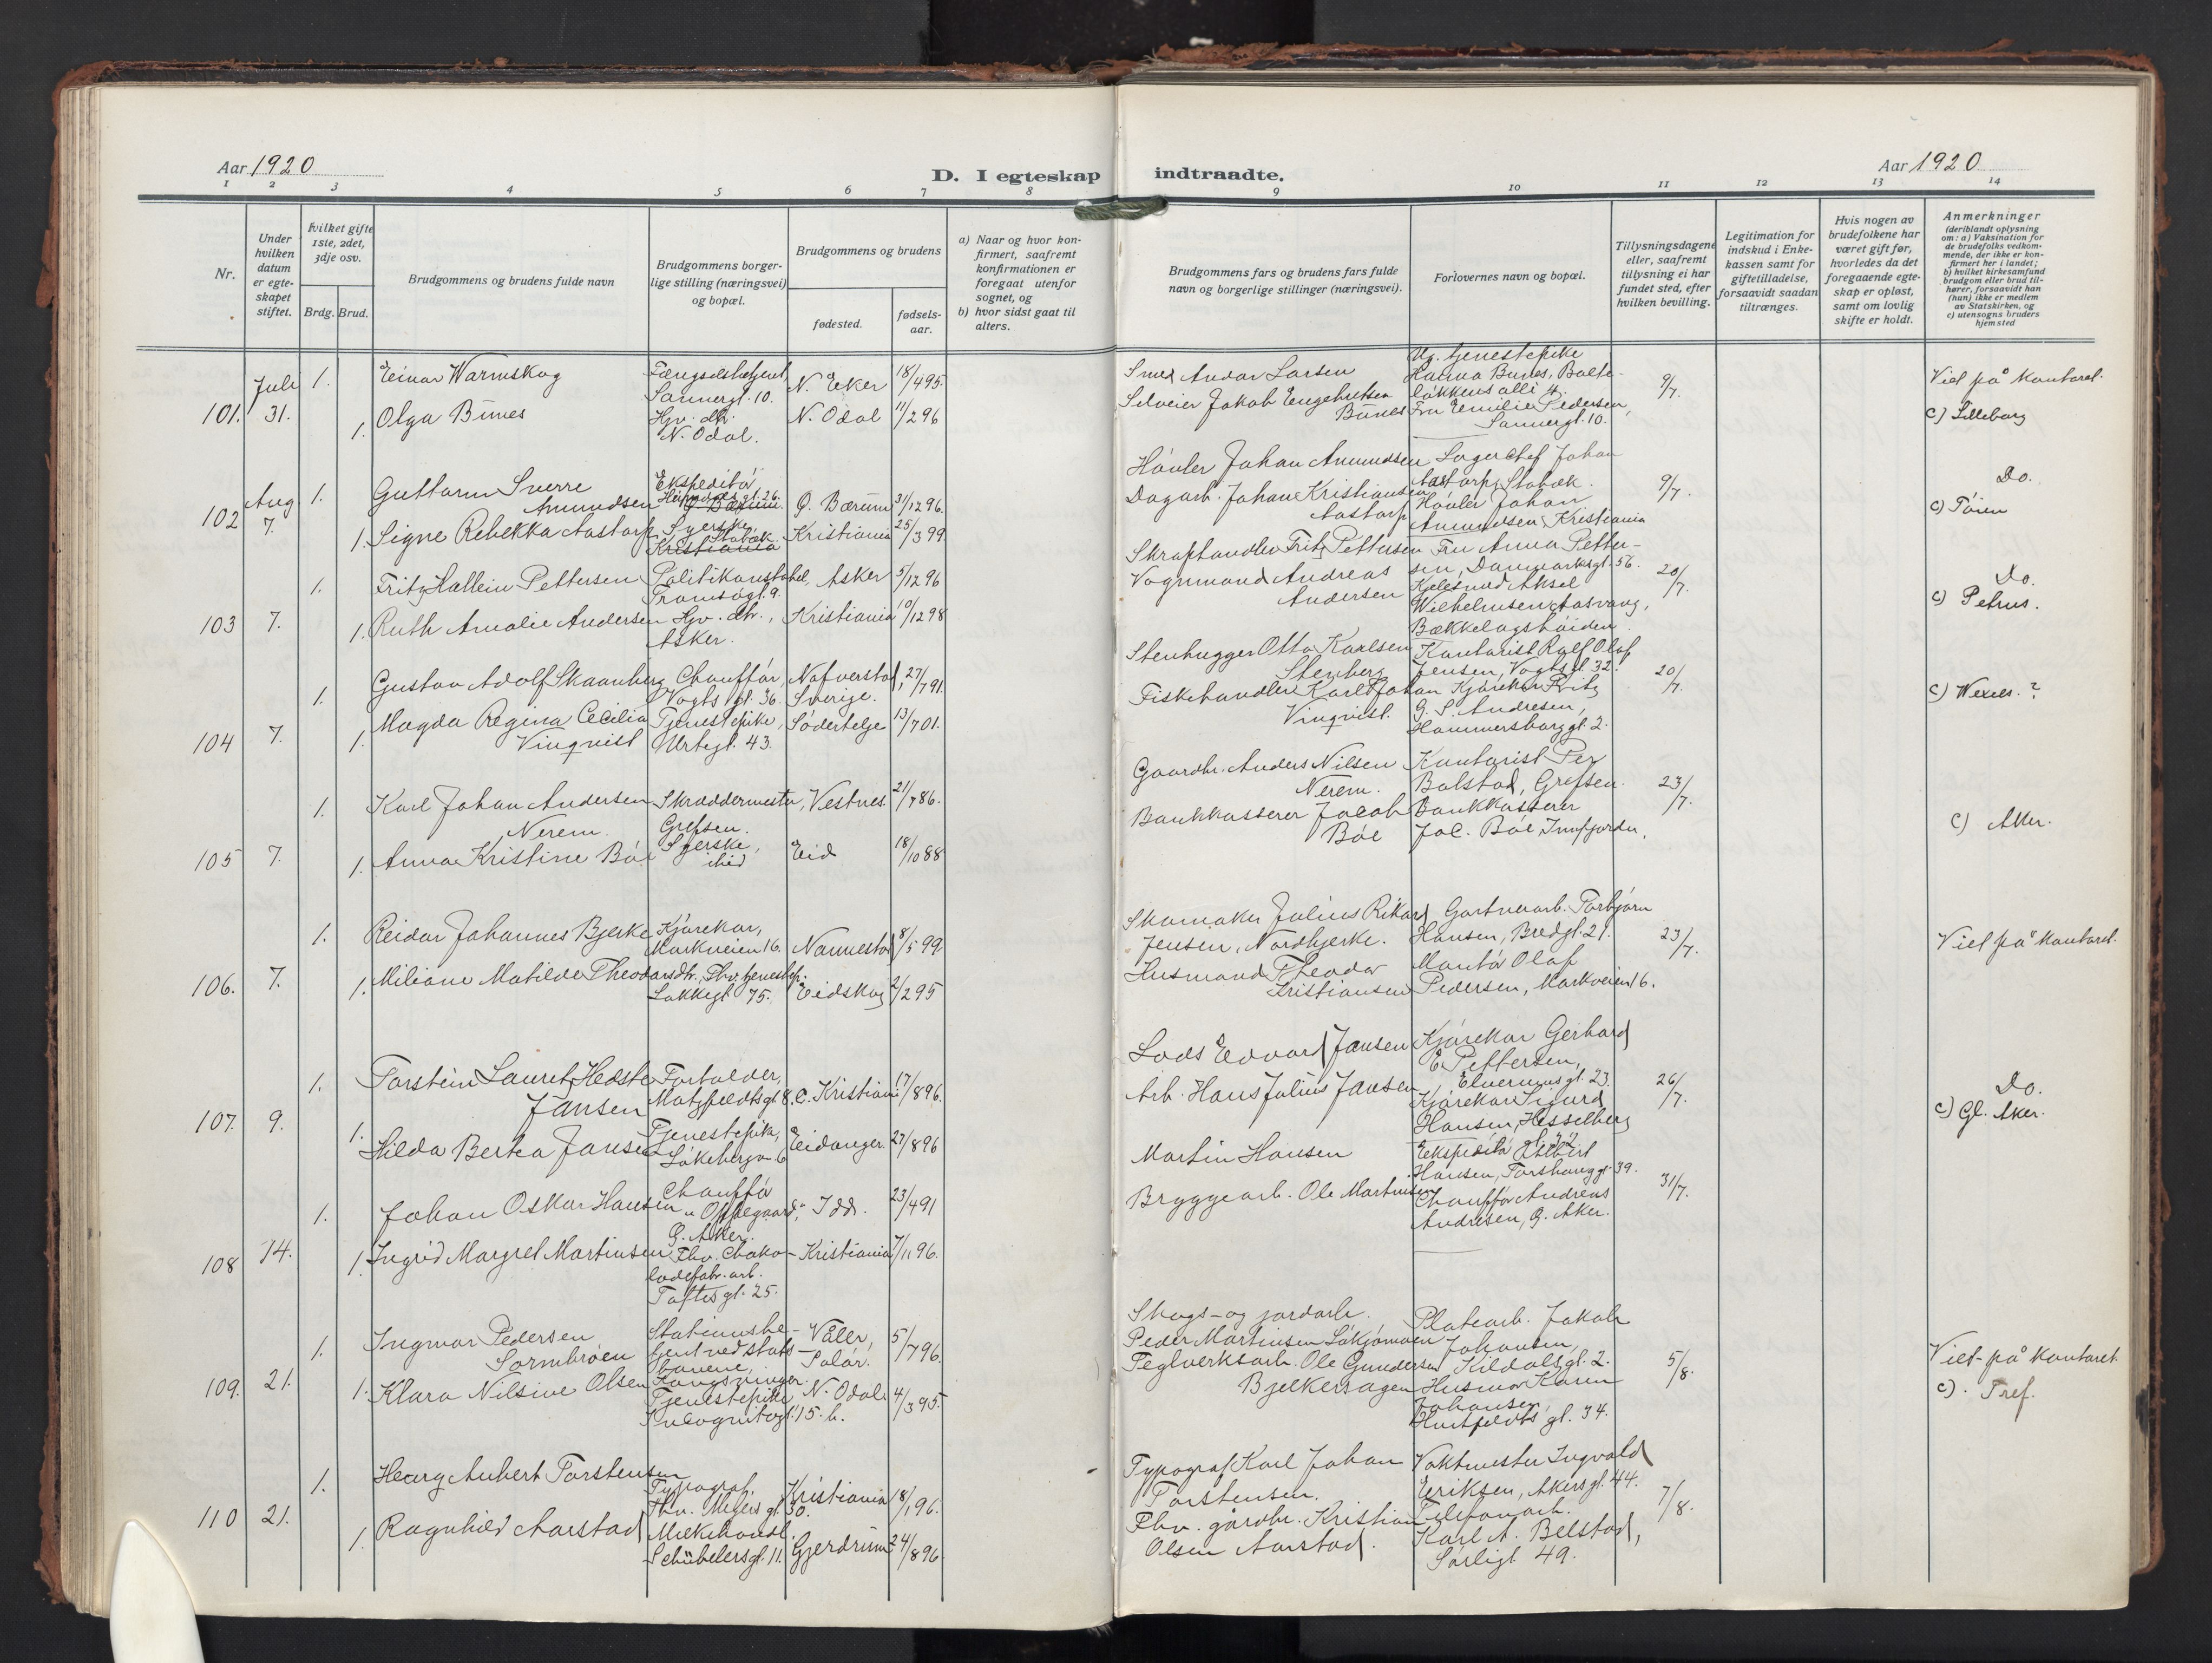 Aar 1920
D. I egteskap
indtraadte.
Aar 1920
1 2 3 4 5 6 7 8 9 10 11 12 13 14
Nr.
Under hvilken datum er egteskapet stiftet.
Hvilket gifte 1ste, 2det, 3dje osv.
Brdg. Brud.
Brudgommens og brudens fulde navn
Brudgommens borgerlige stilling (næringsvei) og bopæl.
Brudgommens og brudens
fødested.
fødselsaar.
a) Naar og hvor konfirmert, saafremt konfirmationen er foregaat utenfor sognet, og
b) hvor sidst gaat til alters.
Brudgommens fars og brudens fars fulde navn og borgerlige stillinger (næringsvei).
Forlovernes navn og bopæl.
Tillysningsdagene eller, saafremt tillysning ei har fundet sted, efter hvilken bevilling.
Legitimation for indskud i Enkekassen samt for giftetilladelse, forsaavidt saadan tiltrænges.
Hvis nogen av brudefolkene har været gift før, hvorledes da det foregaaende egteskap er opløst, samt om lovlig skifte er holdt.
Anmerkninger (deriblandt oplysning om: a) Vaksination for de brudefolks vedkommende, der ikke er konfirmert her i landet; b) hvilket kirkesamfund brudgom eller brud tilhører, forsaavidt han (hun) ikke er medlem av Statskirken, og c) utensogns bruders hjemsted
101. Juli 31.
1. Einar Warmskog
Fængselsbetjent, Sannergt. 10.
N. Eker 18/4 95.
1. Olga Bünes
Hjv. dtr. N. Odal.
N. Odal 11/2 96
Smed Andor Larsen
Selveier Jakob Engebretsen Bünes
Ug. tjenestepike Hanna Bunes, Balteløkkens alle 4.
Fru Emilie Pedersen, Sannergt. 10.
9/7.
Viet på kontoret.
c) Lilleborg
102 Aug 7.
1. Guttorm Sverre Amundsen
Ekspeditør
Ø. Bærum.
Ø. Bærum 31/12 96.
1. Signe Rebekka Aastorp
Syerske Stabæk
Kristiania
Kristiania 25/3 99.
Høvler Johan Amundsen
Dagarb. Johan Kristiansen Aastorp
Lagerchef Johan Aastorp, Stabæk.
Høvler Johan Amundsen, Kristiania
9/7.
Do.
c) Tøien
103 7.
1. Fritz Hallein Pettersen
Politikonstabel, Tromsøgt. 9.
Asker 5/12 96
1. Ruth Amalie Andersen
Hjv. dtr., Asker.
Kristiania 10/12 98
Skraphandler Fritz Pettersen
Vognmand Andreas Andersen
Fru Anna Pettersen, Danmarksgt. 56.
Kjelesmed Aksel Wilhelmsen, Aasvang, Bækkelagshøiden
20/7.
Do.
c) Petrus.
104 7.
1. Gustav Adolf Skaanberg
Chauffør, Vogts gt. 36.
Nafverstad, Sverige. 27/7 91.
1. Magda Regina Cecilia Vinqvist
Tjenestepike, Urtegt. 43.
Södertelje 13/7 01.
Stenhugger Otto Karlsen Stenberg
Fiskehandler Karl Johan Vinqvist.
Kontorist Rolf Olaf Jensen, Vogtsgt. 32.
Kjørekar Fritz G. S. Andresen, Hammersborggt. 2.
20/7.
c) Wexels. ?
105 7.
1. Karl Johan Andersen Nerem.
Skræddermester, Grefsen.
Vestnes 21/7 86.
1. Anna Kristine Bøe
Syerske, ibid
Eid 18/10 88
Gaardbr. Anders Nilsen Nerem.
Bankkasserer Jacob Bøe
Kontorist Per Bolstad, Grefsen.
Bankkasserer Jac. Bøe Innfjorden.
23/7.
c) Aker.
106. 7.
1. Reidar Johannes Bjerke
Kjørekar, Markveien 16.
Nannestad 8/5 99
1. Miliane Matilde Theodorsdtr.
Fhv. tjenestep. Lakkegt. 75.
Eidskog 2/2 95
Skomaker Julius Rikard Jensen, Nordbjerke.
Husmand Theodor Kristiansen
Gartnerarb. Torbjørn Hansen, Bredgt. 21.
Montør Olaf Pedersen, Markveien 16.
23/7.
Viet på kontoret.
107. 9.
1. Torstein Lauret Hedste Jansen
Forvalder, 8.
Kristiania 17/8 96.
1. Hilda Berta Jansen
Tjenestepike,
Eidanger. 27/8 96
Lods Edvard Jansen
Arb. Hans Julius Jansen
Kjørekar Gerhard E. Pettersen, Elverumsgt. 23.
Kjørekar Sigurd Hansen, Hesselberg gt. 32
26/7.
Do.
c) Gl. Aker.
108 14.
1. Johan Oskar Hansen
Chauffør "Oppegaard," Ø. Aker.
Idd. 23/4 91
1. Ingrid Margret Martinsen
Fhv. Chokoladefabr. arb. Toftesgt. 25.
Kristiania 7/11 96.
Martin Hansen
Bryggearb. Ole Martinsen
Ekspeditør Hansen, 39.
Chauffør Andreas Andresen, Ø. Aker.
31/7.
109. 21.
1. Ingmar Pedersen Sormbroen
Stationsbetjent ved statsbanene, Kongsvinger.
Våler, Solør. 5/7 96.
1. Klara Nilsine Olsen
Tjenestepike Incognitogt. 15. b.
N. Odal 4/3 95.
Skogs- og jordarb. Peder Martinsen
Teglverksarb. Ole Gundersen Bjelkersagen
Platearb. Jakob Johansen, Kildalsgt. 2.
Husmor Karen Johansen Huitfeldts gt. 34.
5/8.
Viet på kontoret.
c). Tref.
110 21.
1. Georg Aubert Torstensen
Typograf, Thv. Meyers gt. 30.
Kristiania 18/1 96.
1. Ragnhild Aarstad
Melkehandl. Schübelersgt. 11.
Gjerdrum 24/8 96
Typograf Karl Johan Torstensen.
Fhv. gårdbr. Kristian Olsen Aarstad.
Vaktmester Ingvald Eriksen, Akersgt. 44.
Telefonarb. Karl A. Belstad, Sørligt 49.
7/8.